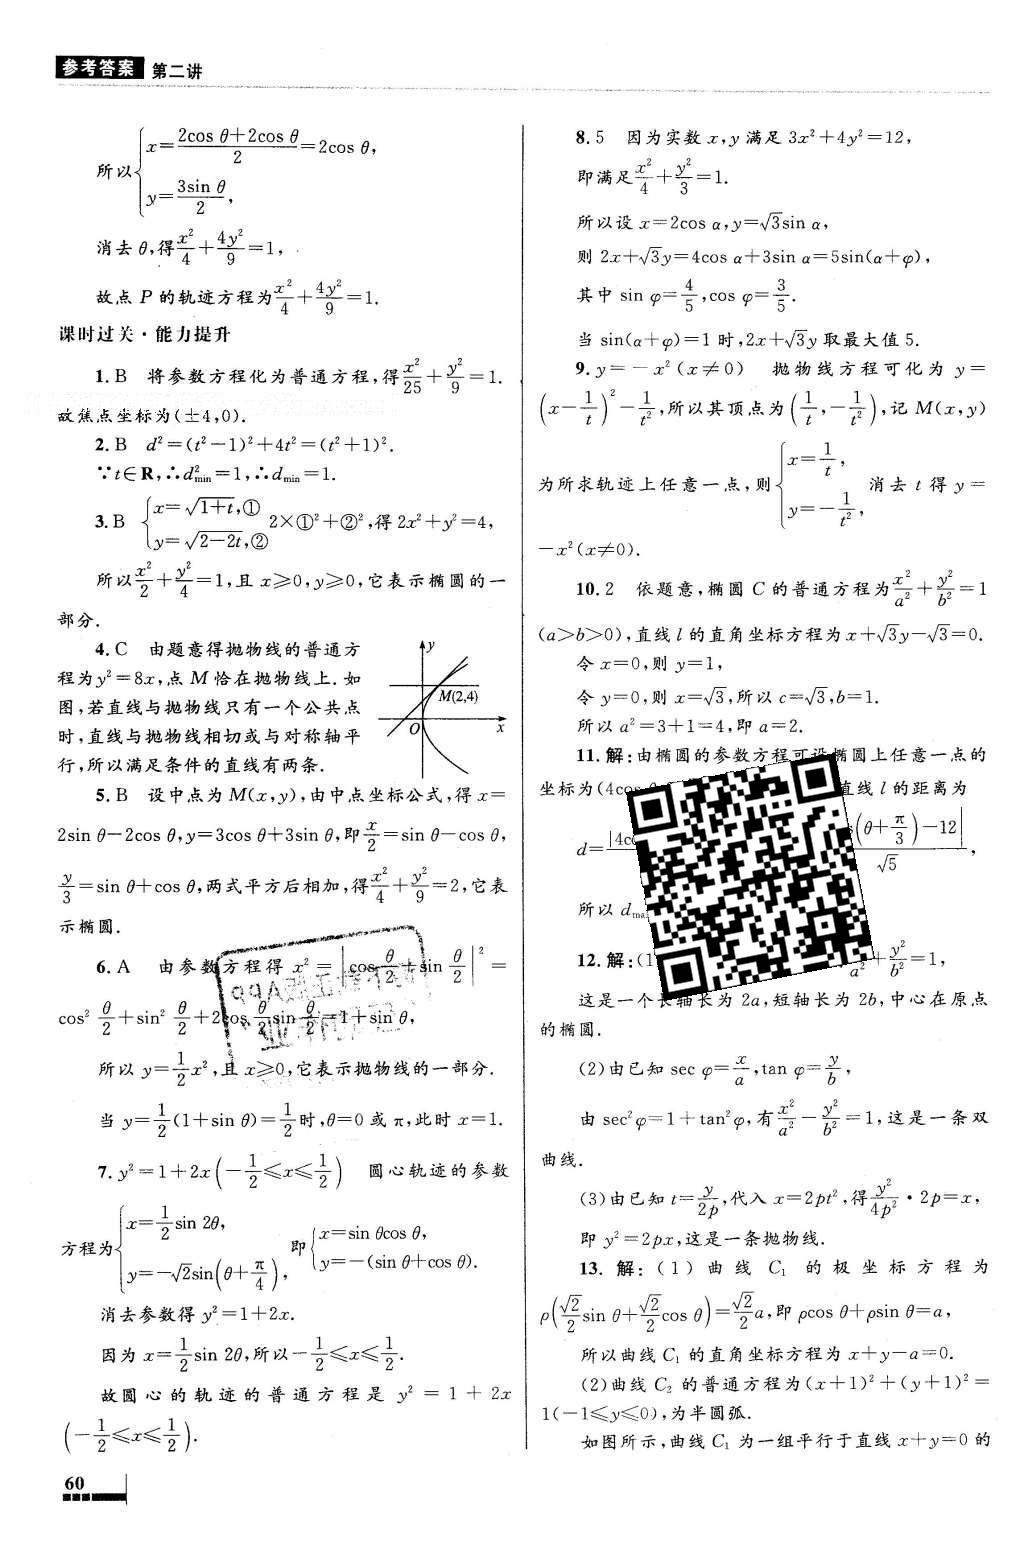 参考答案 第二讲
所以{x=(2cos θ+2cos θ)/2=2cos θ,
y=3sin θ/2,
消去 θ,得x²/4+4y²/9=1,
故点 P 的轨迹方程为x²/4+4y²/9=1.
课时过关·能力提升
1. B 将参数方程化为普通方程,得x²/25+y²/9=1.
故焦点坐标为(±4,0).
2. B d²=(t²-1)²+4t²=(t²+1)².
∵t∈R,∴d²min=1,∴dmin=1.
3. B {x=√(1+t),①
y=√(2-2t),② 2×①²+②²,得 2x²+y²=4,
所以x²/2+y²/4=1,且 x≥0,y≥0,它表示椭圆的一
部分.
4. C 由题意得抛物线的普通方
程为y²=8x,点 M 恰在抛物线上.如
图,若直线与抛物线只有一个公共点
时,直线与抛物线相切或与对称轴平
行,所以满足条件的直线有两条.
y
M(2,4)
O
x
5. B 设中点为 M(x,y),由中点坐标公式,得 x=
2sin θ-2cos θ,y=3cos θ+3sin θ,即x/2=sin θ-cos θ,
y/3=sin θ+cos θ,两式平方后相加,得x²/4+y²/9=2,它表
示椭圆.
6. A 由参数方程得 x²=|cos θ/2+sin θ/2|²=
cos² θ/2+sin² θ/2+2cos θ/2 sin θ/2=1+sin θ,
所以 y=1/2x²,且 x≥0,它表示抛物线的一部分.
当 y=1/2(1+sin θ)=1/2时,θ=0 或 π,此时 x=1.
7. y²=1+2x(-1/2≤x≤1/2) 圆心轨迹的参数
方程为{x=1/2sin 2θ,
y=-√2sin(θ+π/4), 即{x=sin θcos θ,
y=-(sin θ+cos θ).
消去参数得 y²=1+2x.
因为 x=1/2sin 2θ,所以-1/2≤x≤1/2.
故圆心的轨迹的普通方程是 y²=1+2x
(-1/2≤x≤1/2).
60
8. 5 因为实数 x,y 满足 3x²+4y²=12,
即满足x²/4+y²/3=1.
所以设 x=2cos α,y=√3sin α,
则 2x+√3y=4cos α+3sin α=5sin(α+φ),
其中 sin φ=4/5,cos φ=3/5.
当 sin(α+φ)=1 时,2x+√3y 取最大值 5.
9. y=-x²(x≠0) 抛物线方程可化为 y=
(x-1/t)²-1/t²,所以其顶点为(1/t,-1/t²),记 M(x,y)
为所求轨迹上任意一点,则{x=1/t,
y=-1/t², 消去 t 得 y=
-x²(x≠0).
10. 2 依题意,椭圆 C 的普通方程为x²/a²+y²/b²=1
(a>b>0),直线 l 的直角坐标方程为 x+√3y-√3=0.
令 x=0,则 y=1,
令 y=0,则 x=√3,所以 c=√3,b=1.
所以 a²=3+1=4,即 a=2.
11. 解:由椭圆的参数方程可设椭圆上任意一点的
坐标为(4cos 直线 l 的距离为
d=|4c (θ+π/3)-12|/√5,
所以 d
12. 解:(1 +y²/b²=1,
这是一个长轴长为 2a,短轴长为 2b,中心在原点
的椭圆.
(2)由已知 sec φ=x/a,tan φ=y/b,
由 sec²φ=1+tan²φ,有x²/a²-y²/b²=1,这是一条双
曲线.
(3)由已知 t=y/2p,代入 x=2pt²,得y²/4p²·2p=x,
即 y²=2px,这是一条抛物线.
13. 解:(1)曲线 C₁ 的极坐标方程为
ρ(√2/2sin θ+√2/2cos θ)=√2/2a,即 ρcos θ+ρsin θ=a,
所以曲线 C₁ 的直角坐标方程为 x+y-a=0.
(2)曲线 C₂ 的普通方程为(x+1)²+(y+1)²=
1(-1≤y≤0),为半圆弧.
如图所示,曲线 C₁ 为一组平行于直线 x+y=0 的